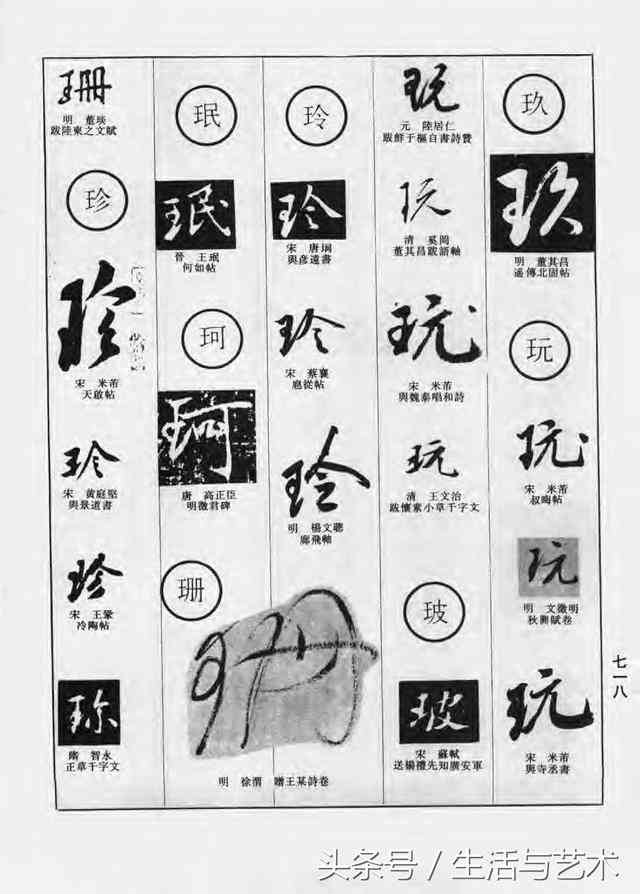 玖
玖
明 董其昌
遙傳北固帖
玩
玩
宋 米芾
叔晦帖
玩
明 文徵明
秋興賦卷
玩
宋 米芾
與寺丞書
玩
元 陸居仁
跋鮮于樞自書詩贊
玩
清 奚岡
董其昌跋語軸
玩
宋 米芾
與魏泰唱和詩
玩
清 王文治
跋懷素小草千字文
玻
玻
宋 蘇軾
送楊禮先知廣安軍
玲
玲
宋 唐坰
與彥遠書
玲
宋 蔡襄
扈從帖
玲
明 楊文驄
飛軸
珉
珉
晉 王珉
何如帖
珂
珂
唐 高正臣
明徵君碑
珊
珊
明 徐渭 贈王某詩卷
珊
明 董
跋陸柬之文賦
珍
珍
宋 米芾
天啟帖
珍
宋 黃庭堅
與景道書
珍
宋 王鞏
冷陶帖
珎
隋 智永
正草千字文
七一八
头条号 / 生活与艺术